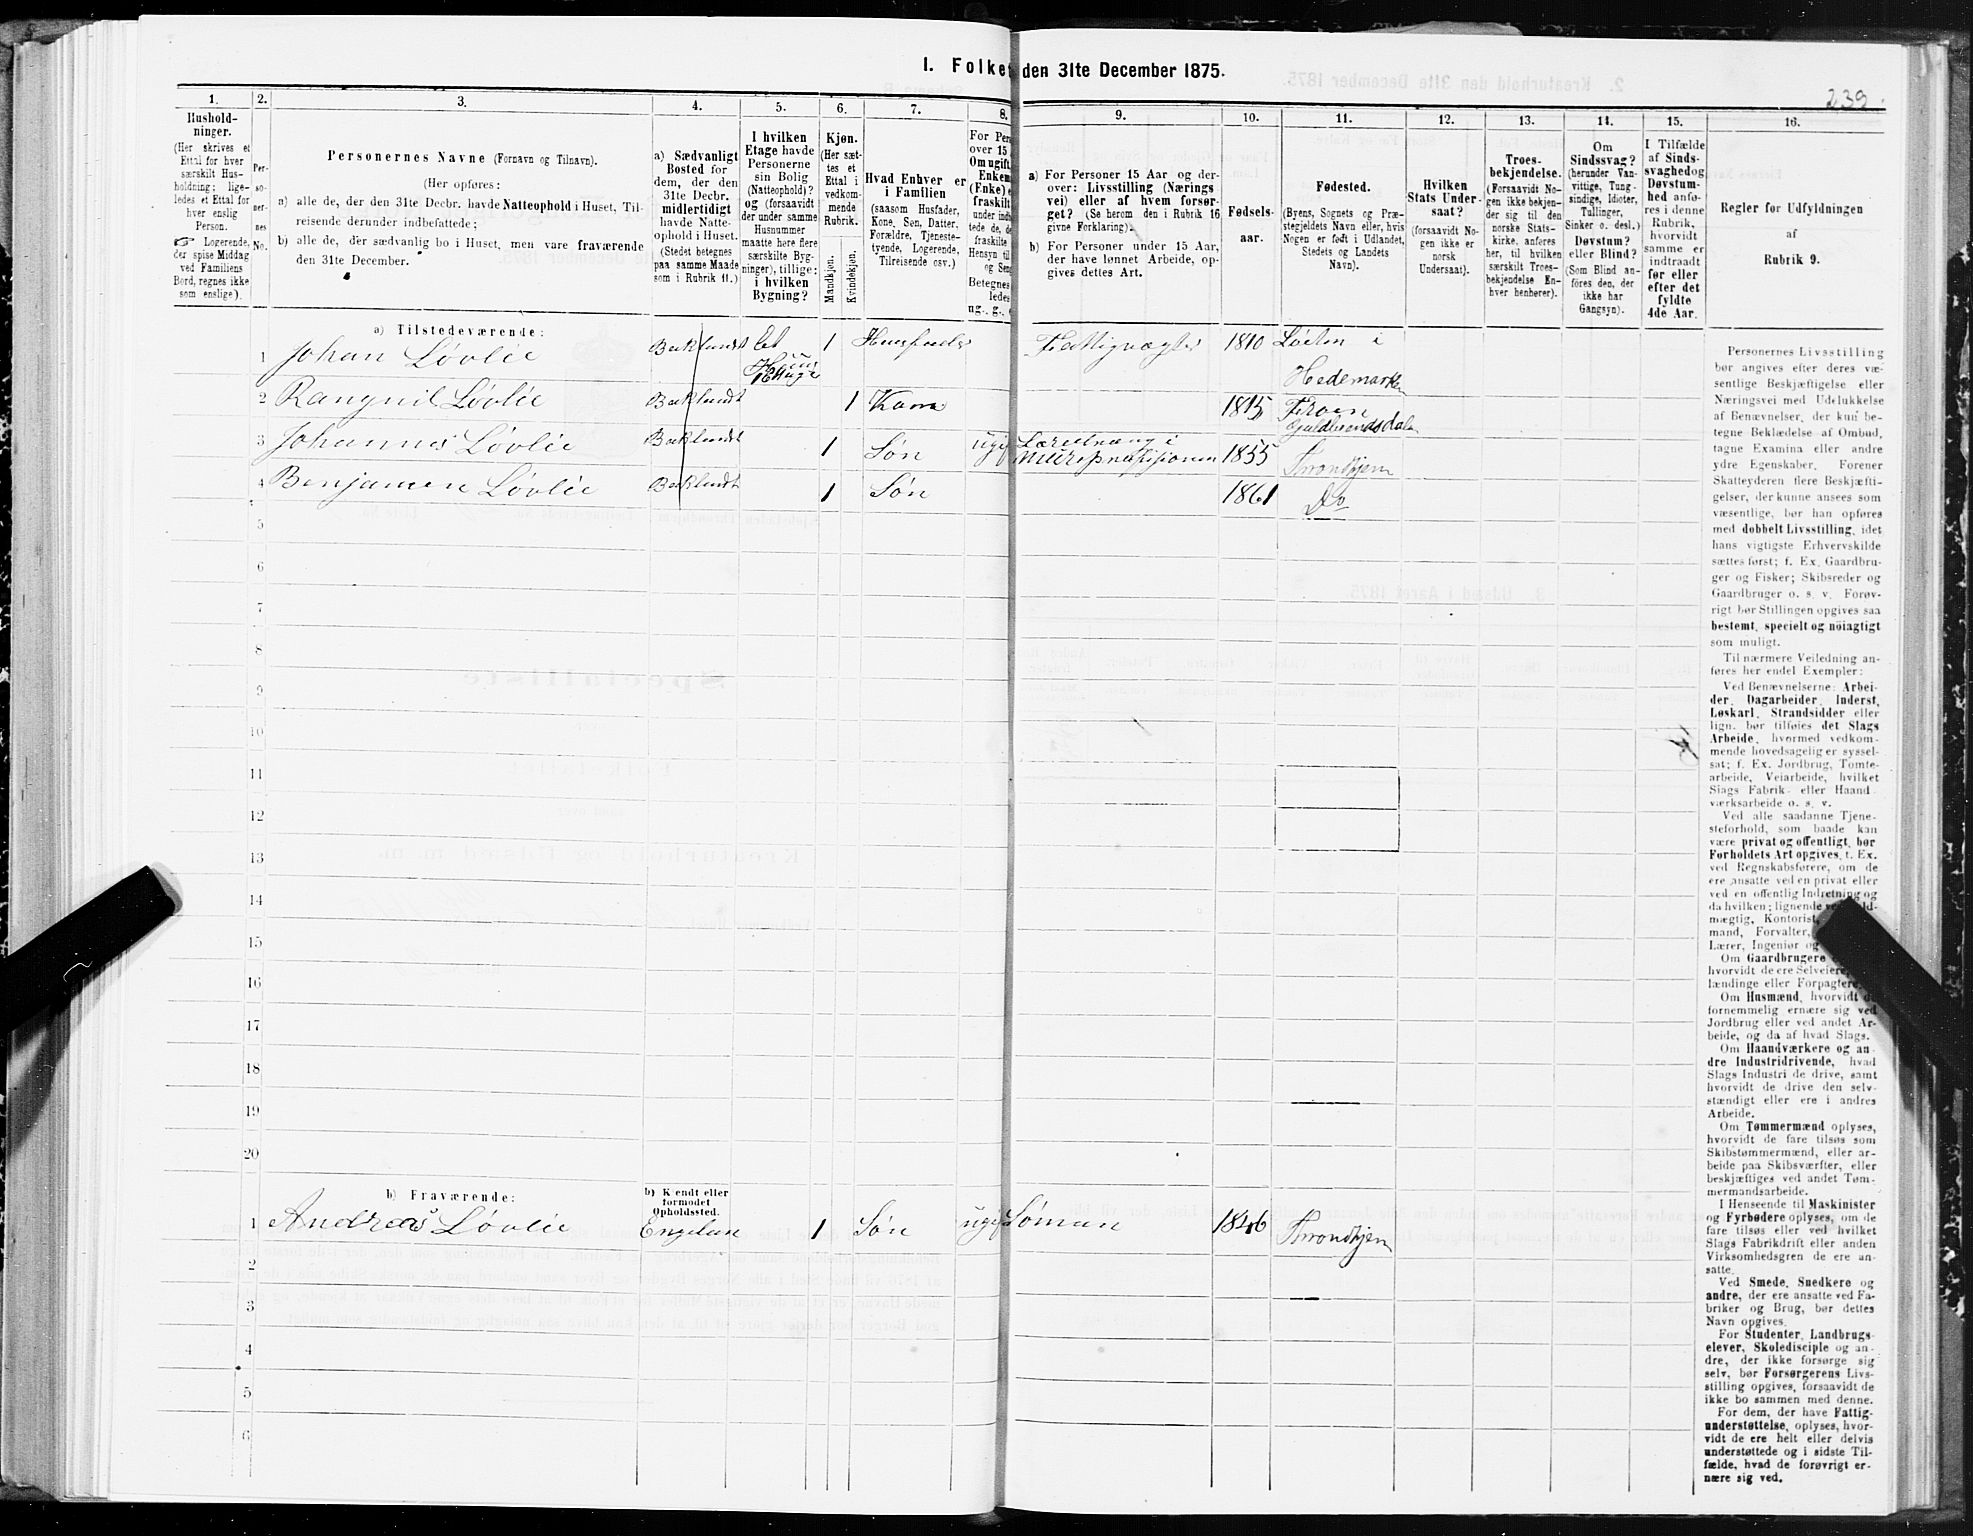 I. Folket den 31te December 1875.
239.
1.
Hushold-
ninger.
(Her skrives et
Ettal for hver
særskilt Hus-
holdning; lige-
ledes et Ettal for
hver enslig
Person.
☞ Logerende,
der spise Middag
ved Familiens
Bord, regnes ikke
som enslige).
2.
Per-
so-
ner-
nes
No.
3.
Personernes Navne (Fornavn og Tilnavn).
(Her opføres:
a) alle de, der den 31te Decbr. havde Natteophold i Huset, Til-
reisende derunder indbefattede;
b) alle de, der sædvanlig bo i Huset, men vare fraværende
den 31te December.
4.
a) Sædvanligt
Bosted for
dem, der den
31te Decbr.
midlertidigt
havde Natte-
ophold i Huset.
(Stedet betegnes
paa samme Maade
som i Rubrik 11.)
5.
I hvilken
Etage havde
Personerne
sin Bolig
(Natteophold)?
og (forsaavidt
der under samme
Husnummer
maatte høre flere
særskilte Byg-
ninger), tillige:
i hvilken
Bygning?
6.
Kjøn.
(Her sæt-
tes et
Ettal i
vedkom-
mende
Rubrik.
Mandkjøn.
Kvindekjøn.
7.
Hvad Enhver er
i Familien
(saasom Husfader,
Kone, Søn, Datter,
Forældre, Tjeneste-
tyende, Logerende,
Tilreisende osv.)
8.
For Per
over 15
Om ugift,
Enkem
(Enke) e
fraskilt
under indb
tede de, d
fraskilte
Hensyn til
og Sen
Betegnes
ledes
ug., g., e
9.
a) For Personer 15 Aar og der-
over: Livsstilling (Nærings
vei) eller af hvem forsør-
get? (Se herom den i Rubrik 16
givne Forklaring).
b) For Personer under 15 Aar,
der have lønnet Arbeide, op-
gives dettes Art.
10.
Fødsels-
aar.
11.
Fødested.
(Byens, Sognets og Præ-
stegjeldets Navn eller, hvis
Nogen er født i Udlandet,
Stedets og Landets
Navn).
12.
Hvilken
Stats Under-
saat?
(forsaavidt No-
gen ikke er
norsk
Undersaat).
13.
Troes-
bekjendelse.
(Forsaavidt No-
gen ikke bekjen-
der sig til den
norske Stats-
kirke, anføres
her, til hvilken
særskilt Troes-
bekjendelse En-
hver henhører).
14.
Om
Sindssvag?
(herunder Van-
vittige, Tung-
sindige, Idioter,
Tullinger,
Sinker o. desl.)
Døvstum?
eller Blind?
(Som Blind an-
føres den, der
ikke har
Gangsyn).
15.
I Tilfælde
af Sinds-
svaghed og
Døvstum-
hed anfø-
res i denne
Rubrik,
hvorvidt
samme er
indtraadt
før eller
efter det
fyldte
4de Aar.
16.
Regler for Udfyldningen
af
Rubrik 9.
a) Tilstedeværende:
1 Johan Løvlie Baklandt Et Huus 1 Etage 1 Huusfader Fattigvægter 1810 Løiten i Hedemarken
2 Rangnil Løvlie Baklandt 1 Kone 1815 Froen Guldbrandsdalen
3 Johannes Løvlie Baklandt 1 Søn ugif Læredræng i Murerprofesjonen 1855 Tronhjem
4 Benjamen Løvlie Baklandt 1 Søn 1861 Do
5
6
7
8
9
10
11
12
13
14
15
16
17
18
19
20
b) Fraværende:
b) Kjendt eller
formodet
Opholdssted.
1 Andreas Løvlie Engelan 1 Søn ugif Søman 1846 Tronhjem
2
3
4
5
6
Personernes Livsstilling
bør angives efter deres væ-
sentlige Beskjæftigelse eller
Næringsvei med Udelukkelse
af Benævnelser, der kun be-
tegne Beklædelse af Ombud,
tagne Examina eller andre
ydre Egenskaber. Forener
Skatteyderen flere Beskjæfti-
gelser, der kunne ansees som
væsentlige, bør han opføres
med dobbelt Livsstilling, idet
hans vigtigste Erhvervskilde
sættes først; f. Ex. Gaardbru-
ger og Fisker; Skibsreder og
Gaardbruger o. s. v. Forøv-
rigt bør Stillingen opgives saa
bestemt, specielt og nöiagtigt
som muligt.
Til nærmere Veiledning an-
føres her endel Exempler:
Ved Benævnelserne: Arbei-
der, Dagarbeider, Inderst,
Løskarl, Strandsidder eller
lign. bør tilføies det Slags
Arbeide, hvormed vedkom-
mende hovedsagelig er syssel-
sat; f. Ex. Jordbrug, Tomte-
arbeide, Veiarbeide, hvilket
Slags Fabrik- eller Haand-
værksarbeide o. s. v.
Ved alle saadanne Tjene-
steforhold, som baade kan
være privat og offentligt, bør
Forholdets Art opgives, f. Ex.
ved Regnskabsførere, om de
ere ansatte ved en privat eller
ved en offentlig Indretning og
da hvilken; lignende
mægtig, Kontorist,
mand, Forvalter,
Lærer, Ingeniør og
Om Gaardbrugere
hvorvidt de ere Selveiere,
lændinge eller Forpagtere.
Om Husmænd, hvorvidt de
fornemmelig ernære sig ved
Jordbrug eller ved andet Ar-
beide, og da af hvad Slags.
Om Haandværkere og an-
dre Industridrivende, hvad
Slags Industri de drive, samt
hvorvidt de drive den selv-
stændigt eller ere i andres
Arbeide.
Om Tømmermænd oplyses,
hvorvidt de fare tilsøs som
Skibstømmermænd, eller ar-
beide paa Skibsværfter, eller
beskjæftiges ved andet Tøm-
mermandsarbeide.
I Henseende til Maskinister
og Fyrbødere oplyses, om de
fare tilsøs eller ved hvilket
Slags Fabrikdrift eller anden
Virksomhedsgren de ere an-
satte.
Ved Smede, Snedkere og
andre, der ere ansatte ved Fa-
briker og Brug, bør dettes
Navn opgives.
For Studenter, Landbrugs-
elever, Skoledisciple og an-
dre, der ikke forsørge sig
selv, bør Forsørgerens Livs-
stilling opgives, forsaavidt de
ikke bo sammen med denne.
For dem, der have Fattig-
understøttelse, oplyses, hvor-
vidt de ere helt eller delvis
understøttede og i sidste Til-
fælde, hvad de forøvrigt er-
nære sig ved.